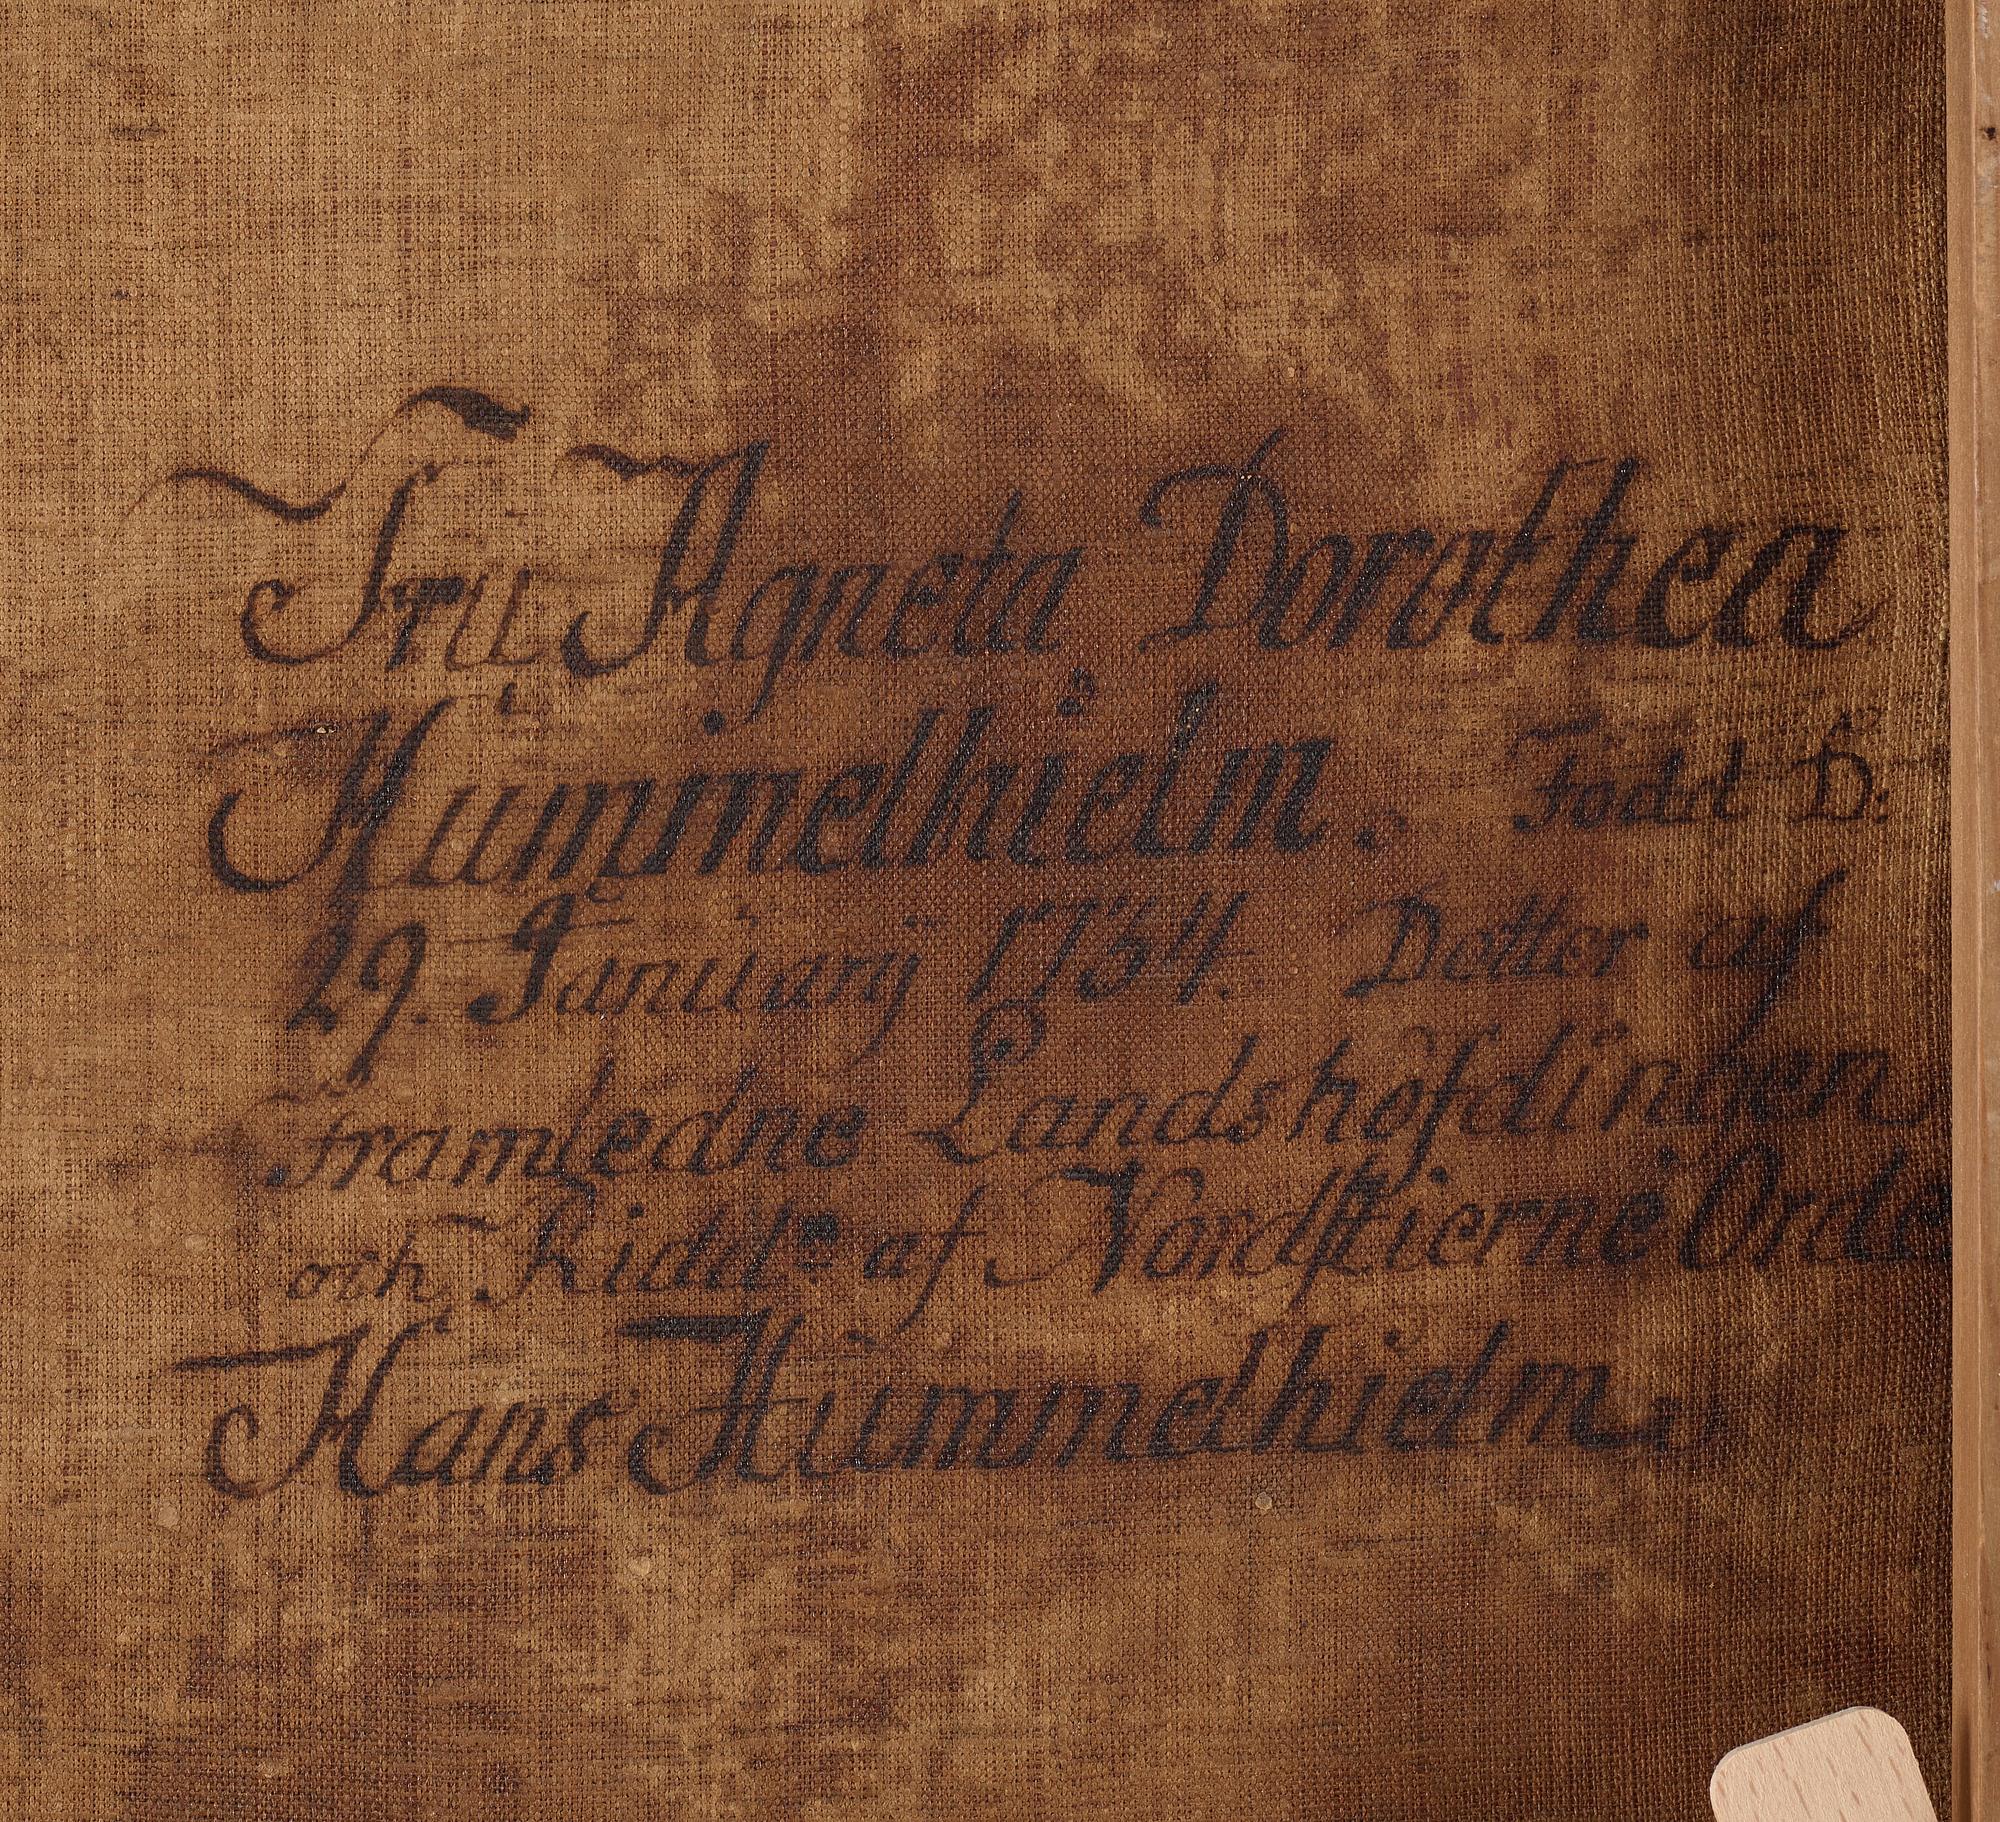 Frú Agneta Dorothea
Húmmelhielm. Född D:
29. Januarij 1734. Dotter af
framledne Landshöfdingen
och Riddn af Nordstierne Orde
Hans Hümmelhielm.